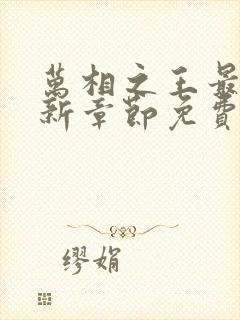 萬相之王最
新章節免費
缪娟